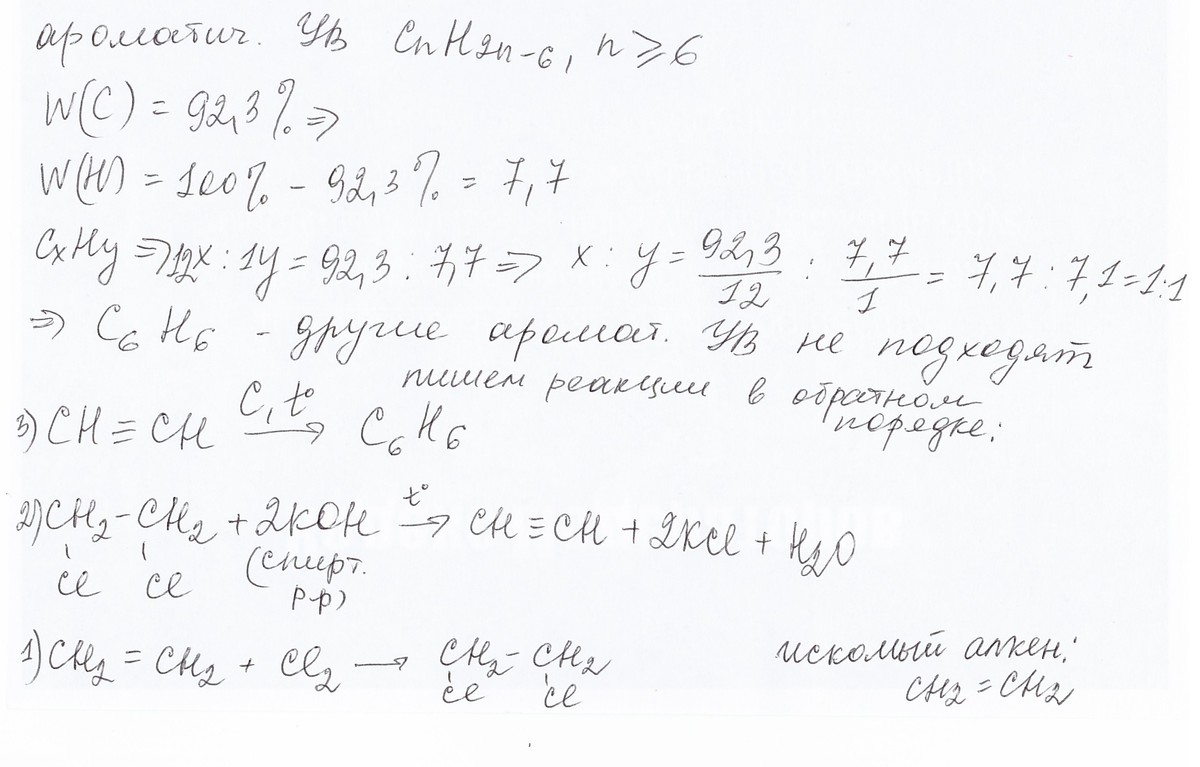 ароматич. УВ CnH2n-6, n ⩾ 6
W(C) = 92,3% ⇒
W(H) = 100% - 92,3% = 7,7
CxHy ⇒ 12x : 1y = 92,3 : 7,7 ⇒ x : y = 92,3/12 : 7,7/1 = 7,7 : 7,1 = 1:1
⇒ C6H6 - другие аромат. УВ не подходят
пишем реакции в обратном
порядке:
3) CH ≡ CH C, t° → C6H6
2) CH2 - CH2 + 2KOH t° → CH ≡ CH + 2KCl + H2O
Cl Cl (спирт.
р-р)
1) CH2 = CH2 + Cl2 → CH2 - CH2
Cl Cl
искомый алкен:
CH2 = CH2